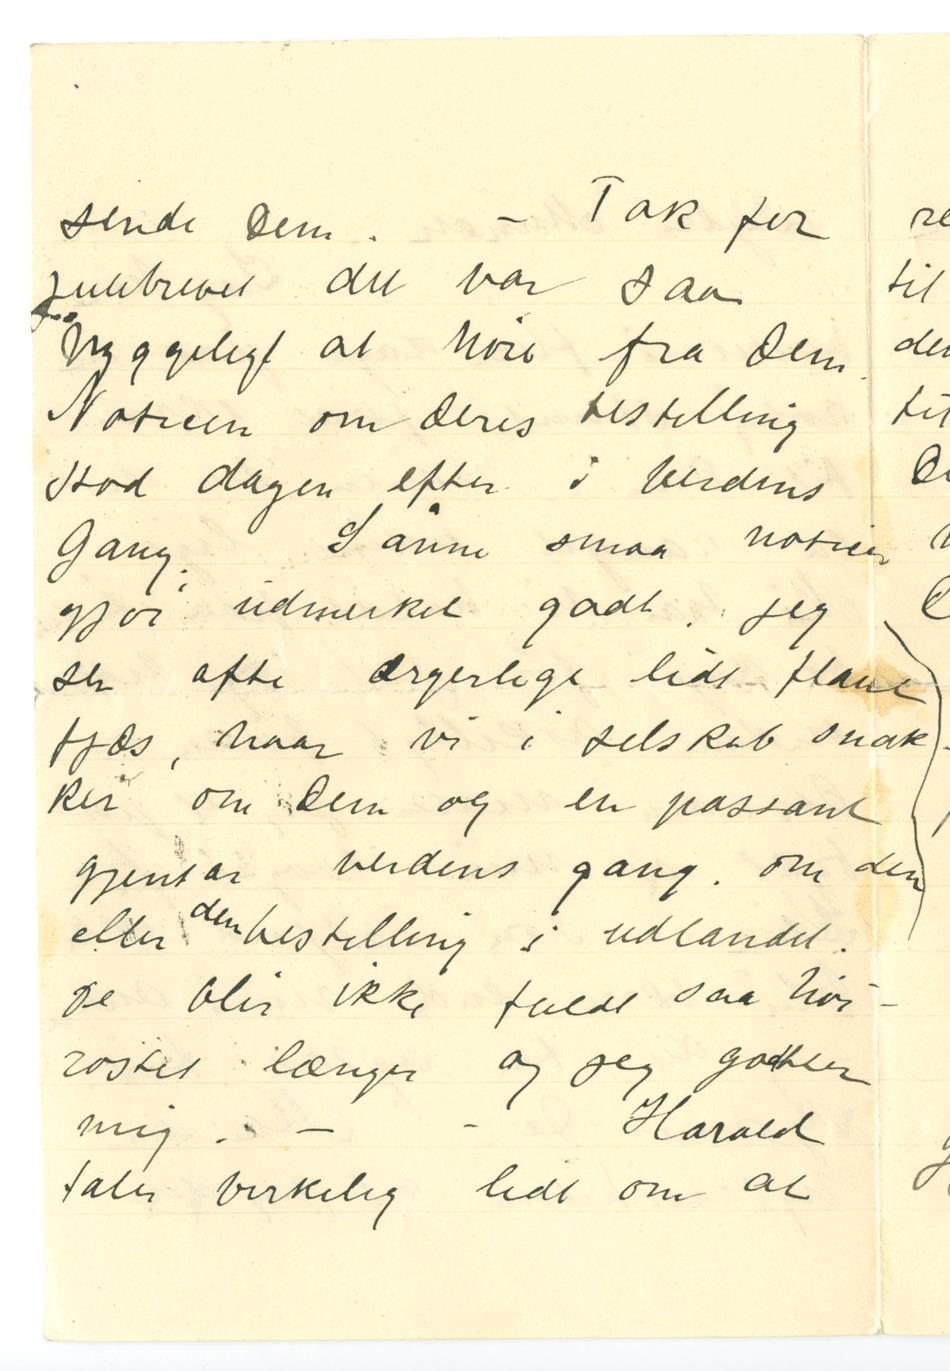 sende Dem. – Tak for
julebrevet det var saa
hyggeligt at höre fra Dem.
Noticen om Deres bestilling
stod dagen efter i Verdens
Gang. Sånne smaa noticer
gjör udmerket godt. jeg
ser ofte ærgerlige lidt flaue
fjæs, naar vi i selskab snak-
ker om Dem og en passant
gjentar verdens gang. om den
eller den bestilling i udlandet.
De blir ikke fuldt saa höi-
röstet længer og jeg godter
mig. – – Harald
taler virkelig lidt om at
re
til
den
til